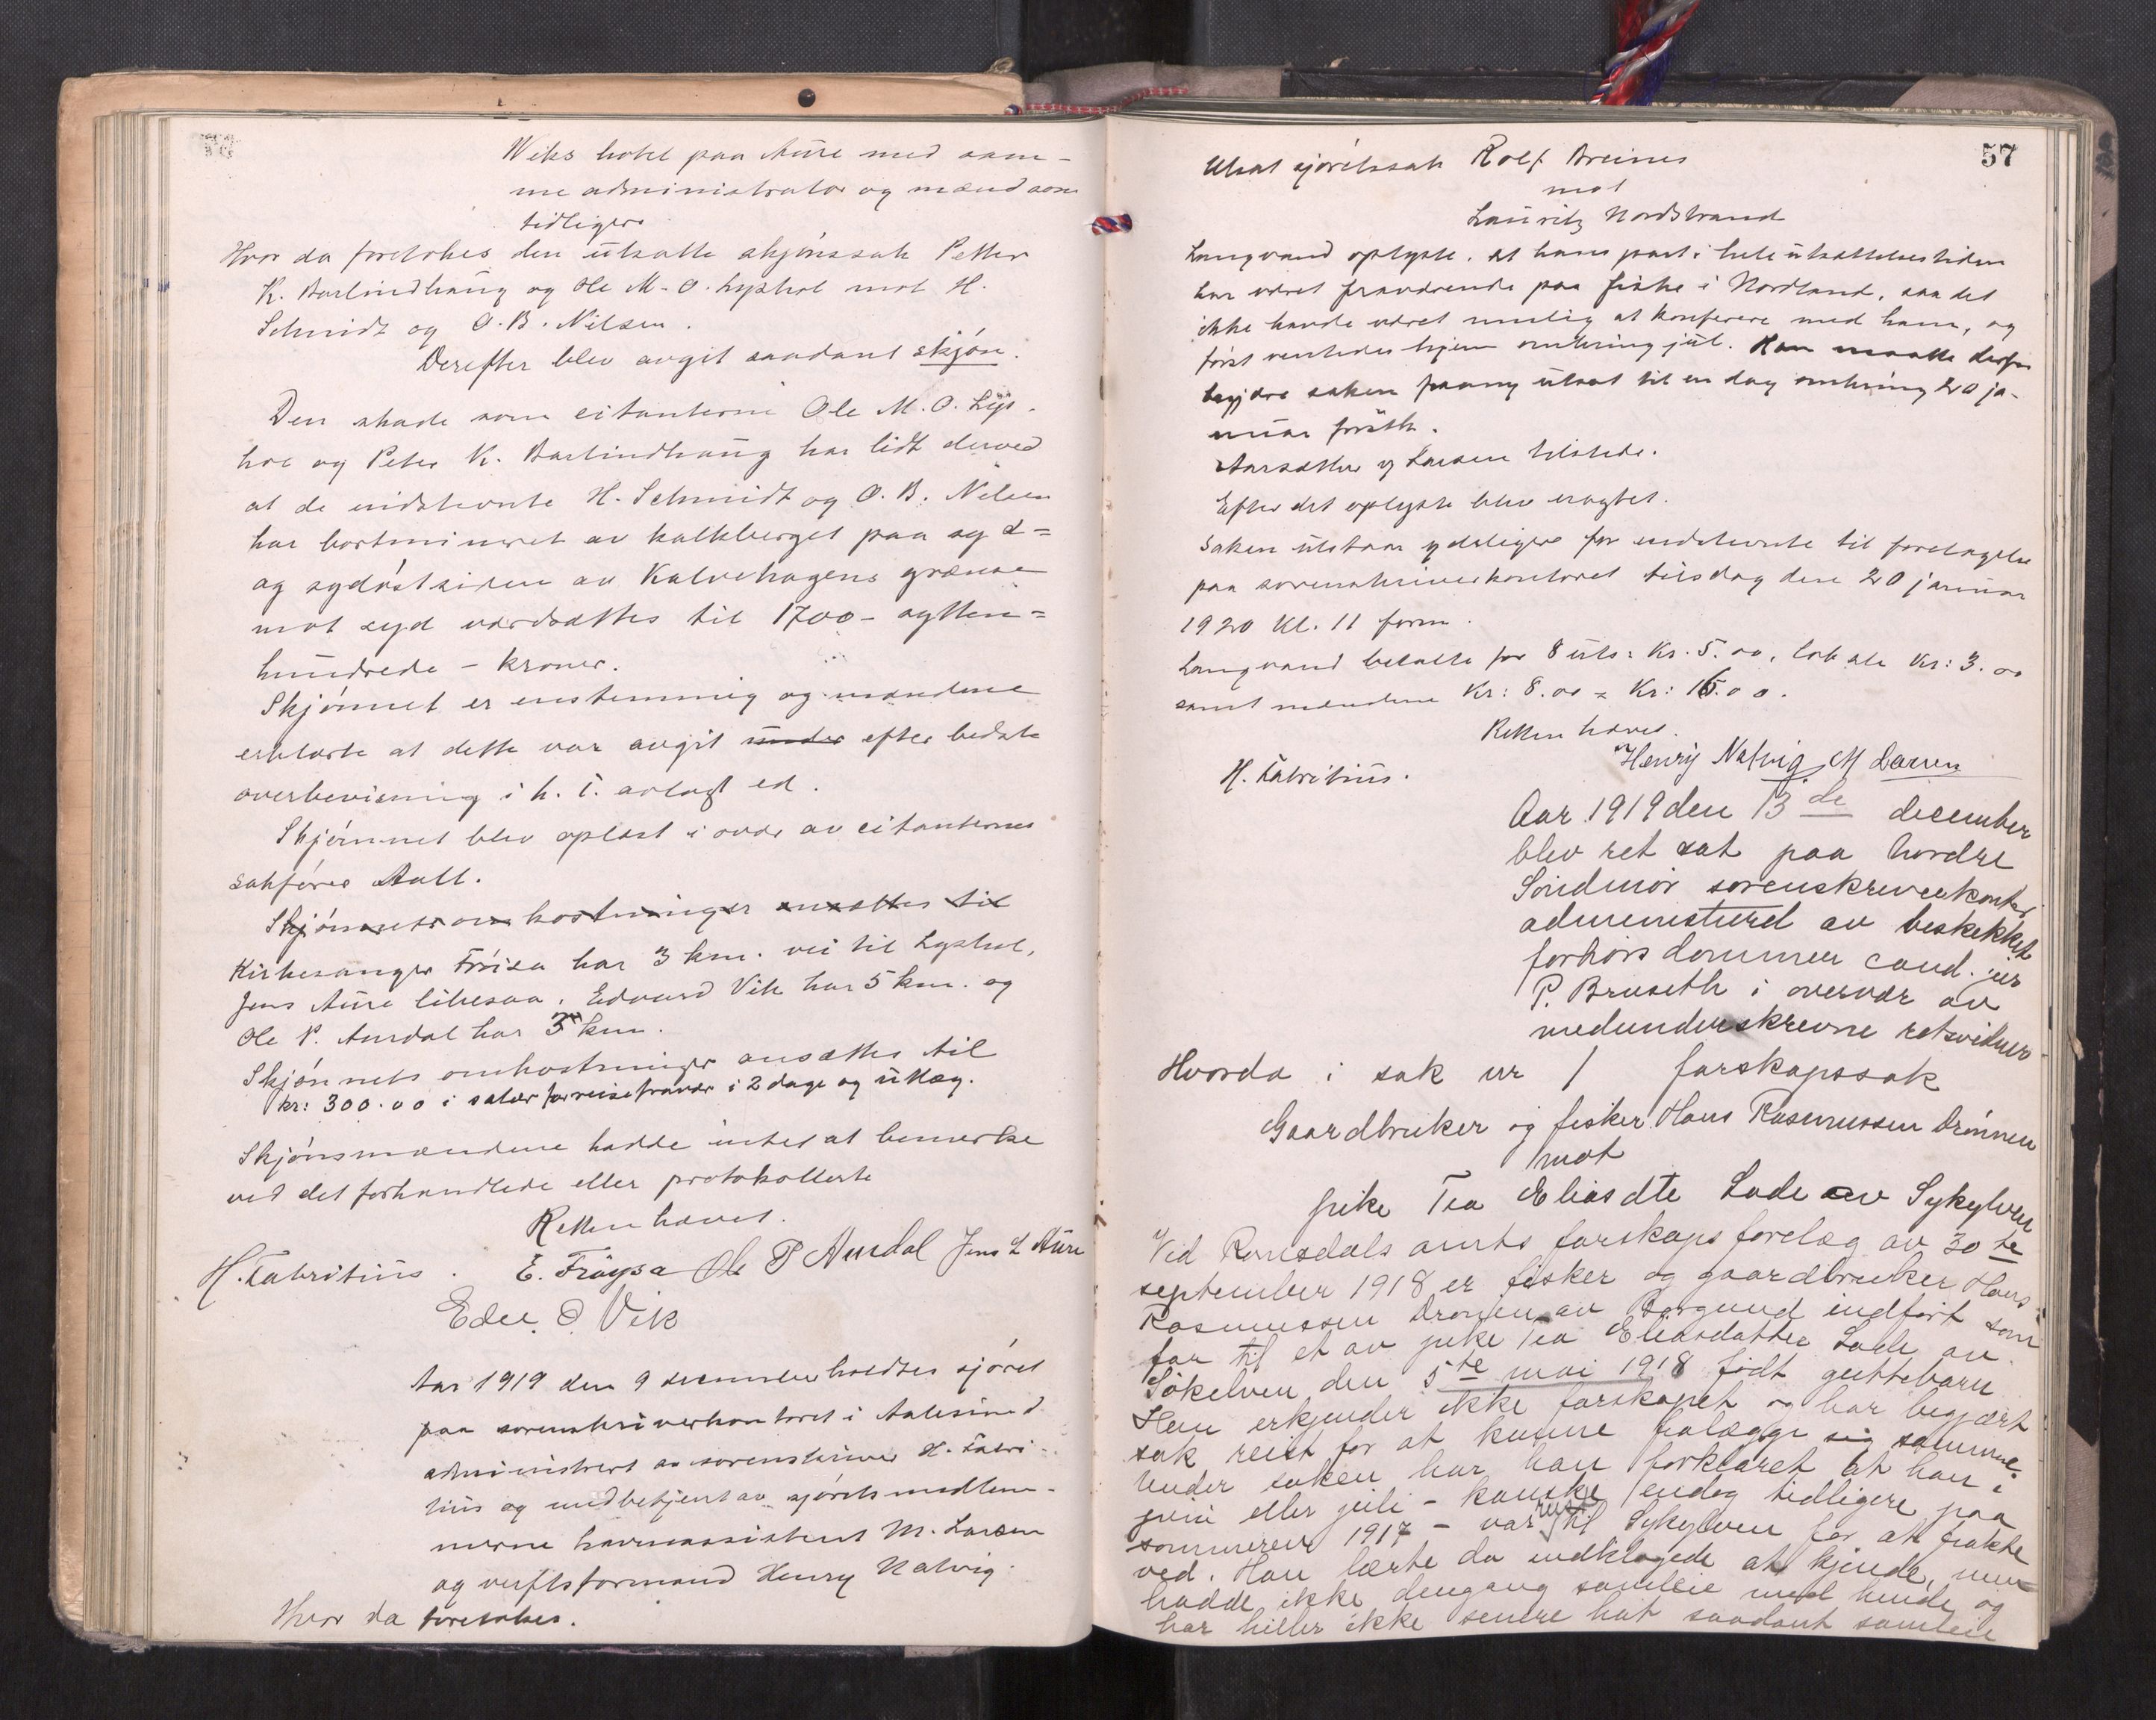 Wiks hotel paa Aure med sam-
me administrator og mænd som
tidligere
Hvor da foretokes den utsatte skjønssak Petter
K. Barlindhaug og Ole M. O. Lyshol mot H.
Schmidt og O. B. Nilsen.
Derefter blev avgit saadant skjøn.
Den skade som citanterne Ole M. O. Lys-
hol og Peter K. Barlindhaug har lidt derved
at de indstevnte H. Schmidt og O. B. Nilsen
har bortmineret av kalkberget paa syd=
og sydøstsiden av Kalvehagens grænse
mot syd værdsættes til 1700 - sytten=
hundrede - kroner.
Skjønnet er enstemmig og mændene
erklærte at dette var avgit under efter bedste
overbevisning i h. t. avlagt ed.
Skjønnet blev oplæst i overv. av citanternes
sakfører Aall.
Skjønnets omkostninger ansættes til
Kirkesanger Frøisa har 3 km. vei til Lyshol,
Jens Aure likesaa. Edvard Vik har 5 km. og
Ole P. Aurdal har 3 km.
Skjønnets omkostninger ansættes til
kr: 300.00 i salær for reisefravær i 2 dage og utlæg.
Skjønsmændene hadde intet at bemerke
ved det forhandlede eller protokollerte
Retten hævet.
H. Fabritius. E. Frøysa Ole P Aurdal Jens L Aure
Edv. O Vik
Aar 1919 den 9 december holdtes sjøret
paa sorenskriverkontoret i Aalesund
administrert av sorenskriver H. Fabri-
tius og medbetjent av sjøretsmedlem-
merne havneassistent M. Larsen
og verftsformand Henry Natvig
Hvor da foretokes.
57
Utsat sjøretssak Rolf Breines
mot
Lauritz Nordstrand
Langvand oplyste, at hans part i hele utsættelsestiden
har været fraværende paa fiske i Nordland, saa det
ikke havde været mulig at konferere med ham, og
først ventedes hjem omkring jul. Han maatte derfor
begjære saken paany utsat til en dag omkring 20 ja-
nuar førstk.
Aarsæther og Larsen tilstede.
Efter det oplyste blev eragtet.
Saken utstaar ydeligere for indstevnte til foretagelse
paa sorenskriverkontoret tirsdag den 20 januar
1920 kl. 11 form.
Langvand betalte for 8 uts: Kr. 5.00, lokale Kr: 3.00
samt mændene Kr: 8.00 = Kr: 16.00.
Retten hævet.
H. Fabritius. Henry Natvig M Larsen
Aar 1919 den 13de december
blev ret sat paa Nordre
Søndmør sorenskriverkontor
administrerd av beskikket
forhørsdommer cand. jur
P. Bruseth i overvær av
medunderskrevne retsvidner
Hvorda i sak nr 1 farskapssak
Gaardbruker og fisker Hans Rasmussen Drønnen
mot
pike Tea Eliasdtr Lade av Sykylven
Ved Romsdals amts farskapsforelæg av 30te
september 1918 er fisker og gaardbruker Hans
Rasmussen Dronen av Borgund indført som
far til et av pike Tea Eliasdatter Lade av
Søkelven den 5te mai 1918 født guttebarn
Han erkjender ikke farskapet og har begjært
sak reist for at kunne fralægge sig samme.
Under saken har han forklaret at han i
juni eller juli - kanske endog tidligere paa
sommeren 1917 - var reist til Sykylven for at frakte
ved. Han lærte da indklagede at kjende, men
hadde ikke dengang samleie med hende og
har heller ikke senere hat saadant samleie